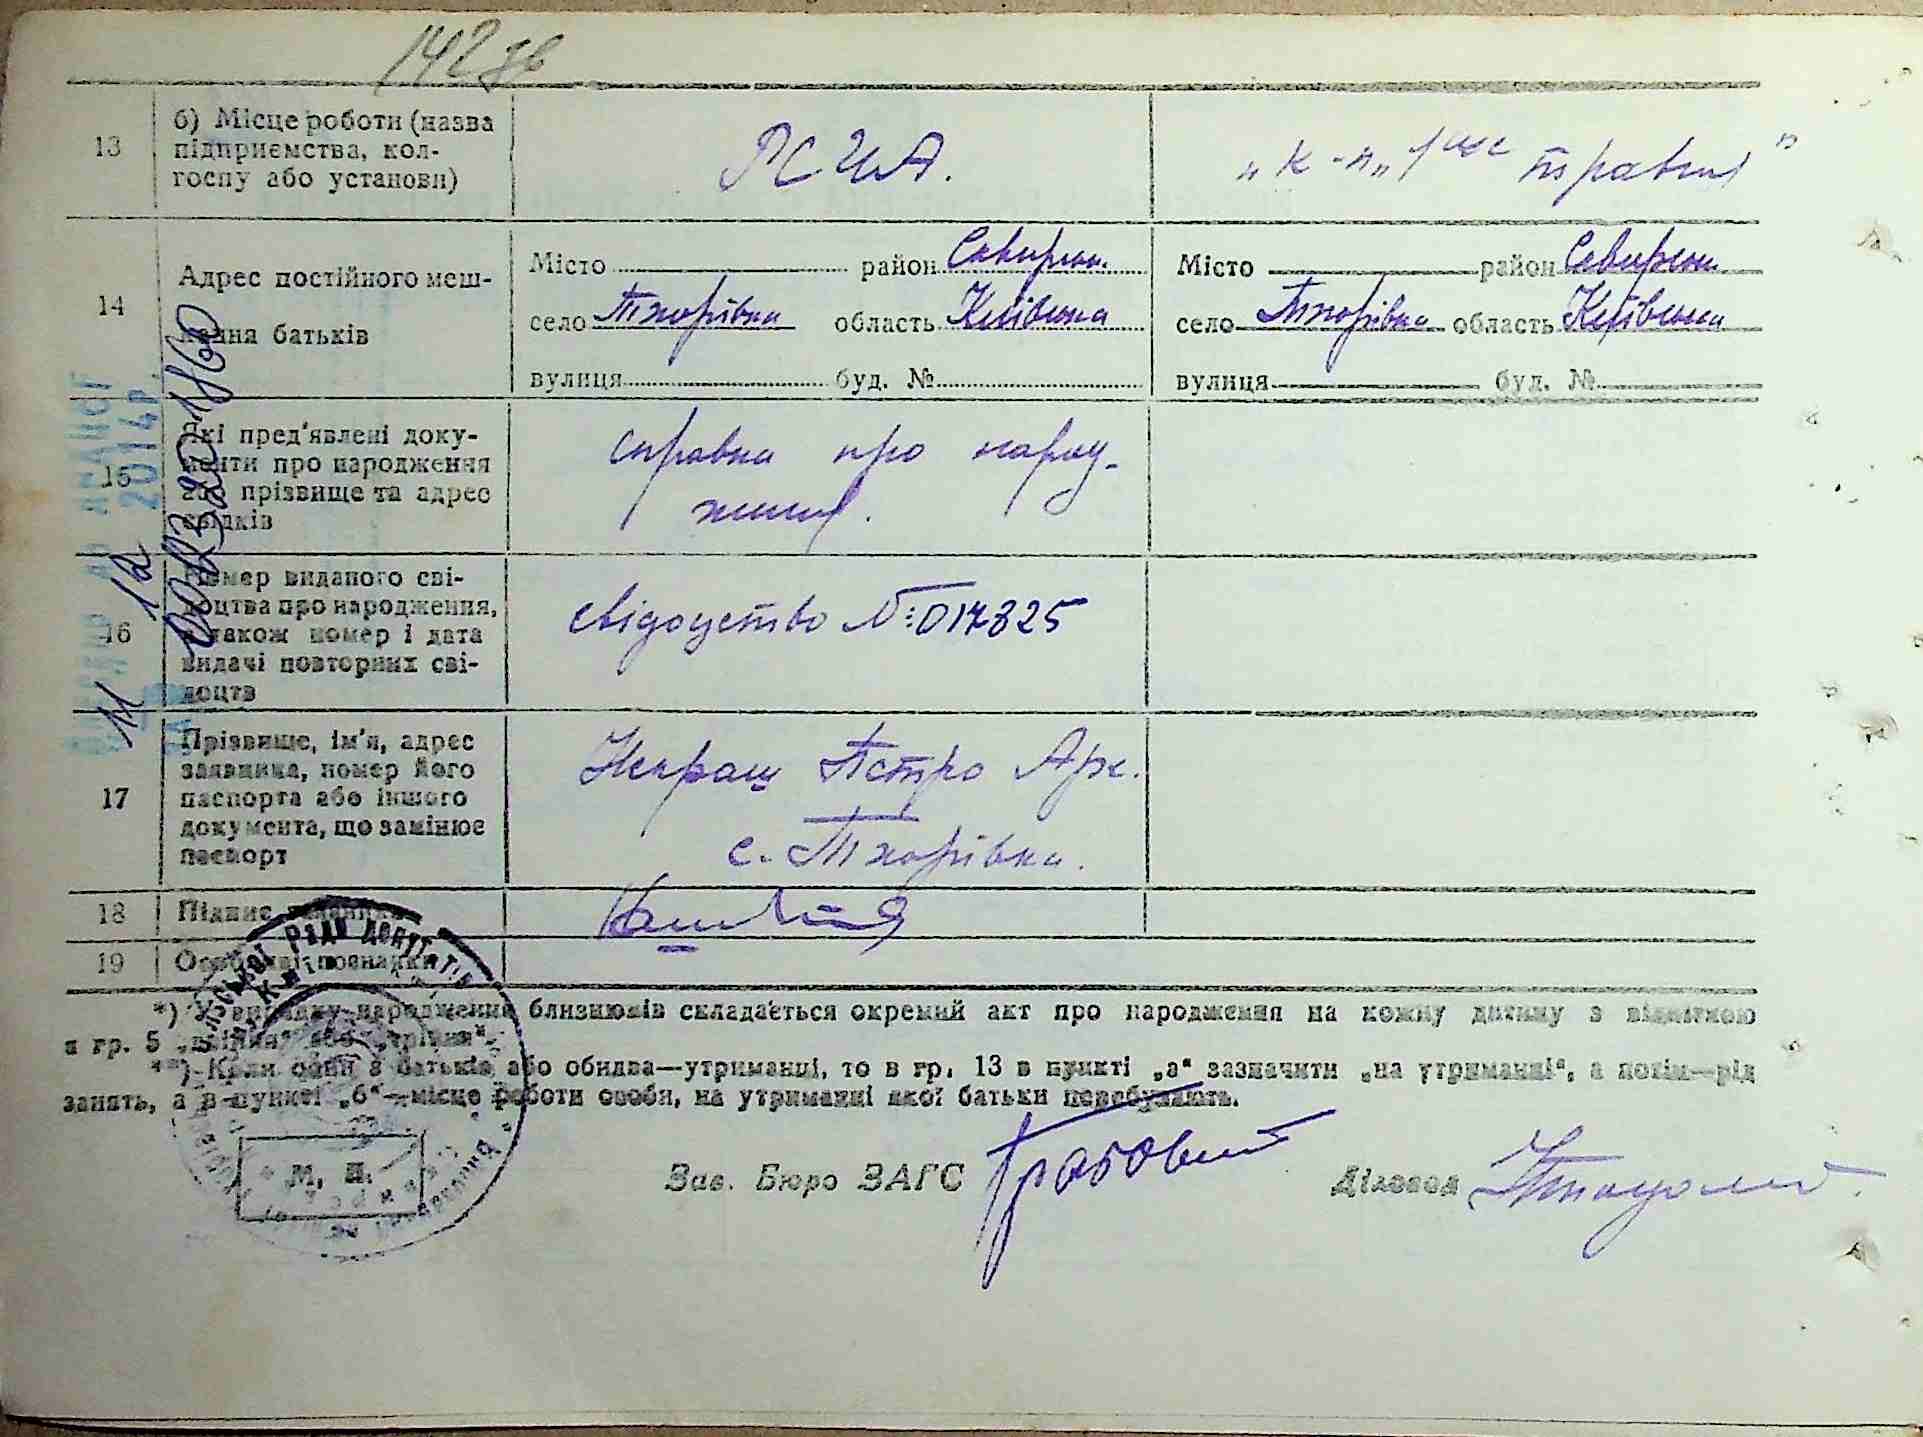 142 зв
13
б) Місце роботи (назва
підприємства, кол-
госпу або установи)
РСЧА.
„к-п „1ше травня"
14
Адрес постійного меш-
кання батьків
Місто район Сквирськ.
село Тхорівка область Київська
вулиця буд. №
Місто район Сквирськ
село Тхорівка область Київська
вулиця буд. №
15
Які пред'явлені доку-
менти про народження
або прізвище та адрес
свідків
справка про народ-
ження.
16
Номер виданого сві-
доцтва про народження,
а також номер і дата
видачі повторних сві-
доцтв
свідоцтво №: 017825
17
Прізвище, ім'я, адрес
заявника, номер його
паспорта або іншого
документа, що замінює
паспорт
Некращ Петро Арх.
с. Тхорівка.
18
Підпис заявника
19
Особливі познаки
*) У випадку народження близнюків складається окремий акт про народження на кожну дитину з відміткою
в гр. 5 „двійня" або „трійня".
**) Коли один з батьків або обидва—утриманці, то в гр. 13 в пункті „а" зазначити „на утриманні", а потім—рід
занять, а в пункті „б"—місце роботи особи, на утриманні якої батьки перебувають.
М. П.
Зав. Бюро ЗАГС Грабовий
Діловод
2014р.
11 12
00123201860